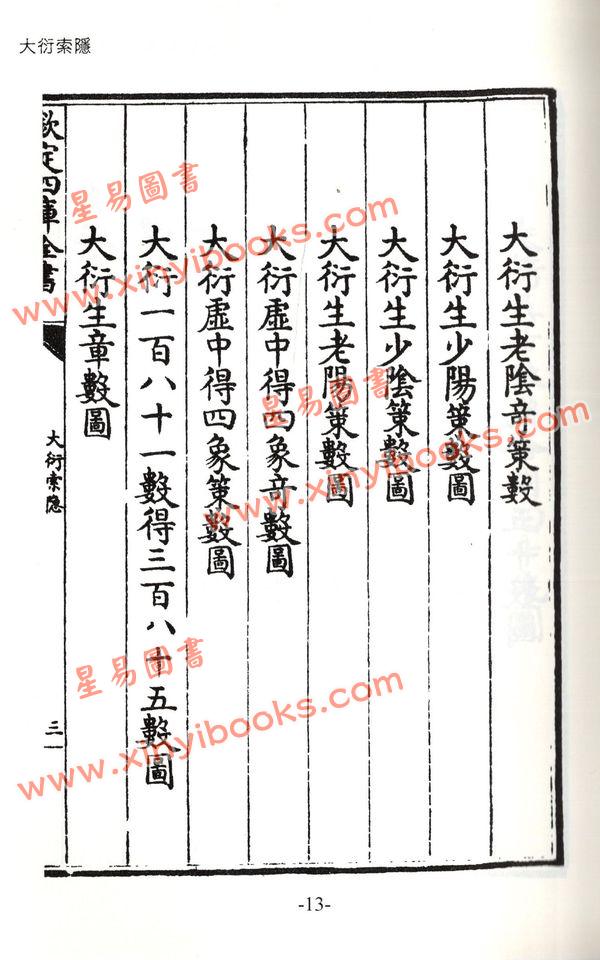 大衍索隱
大衍生老陰奇策數
大衍生少陽策數圖
大衍生少陰策數圖
大衍生老陽策數圖
大衍虛中得四象奇數圖
大衍虛中得四象策數圖
大衍一百八十一數得三百八十五數圖
大衍生章數圖
欽定四庫全書
大衍索隱
三
-13-
星易圖書
www.xinyibooks.com
星易圖書
www.xinyibooks.com
星易圖書
www.xinyibooks.com